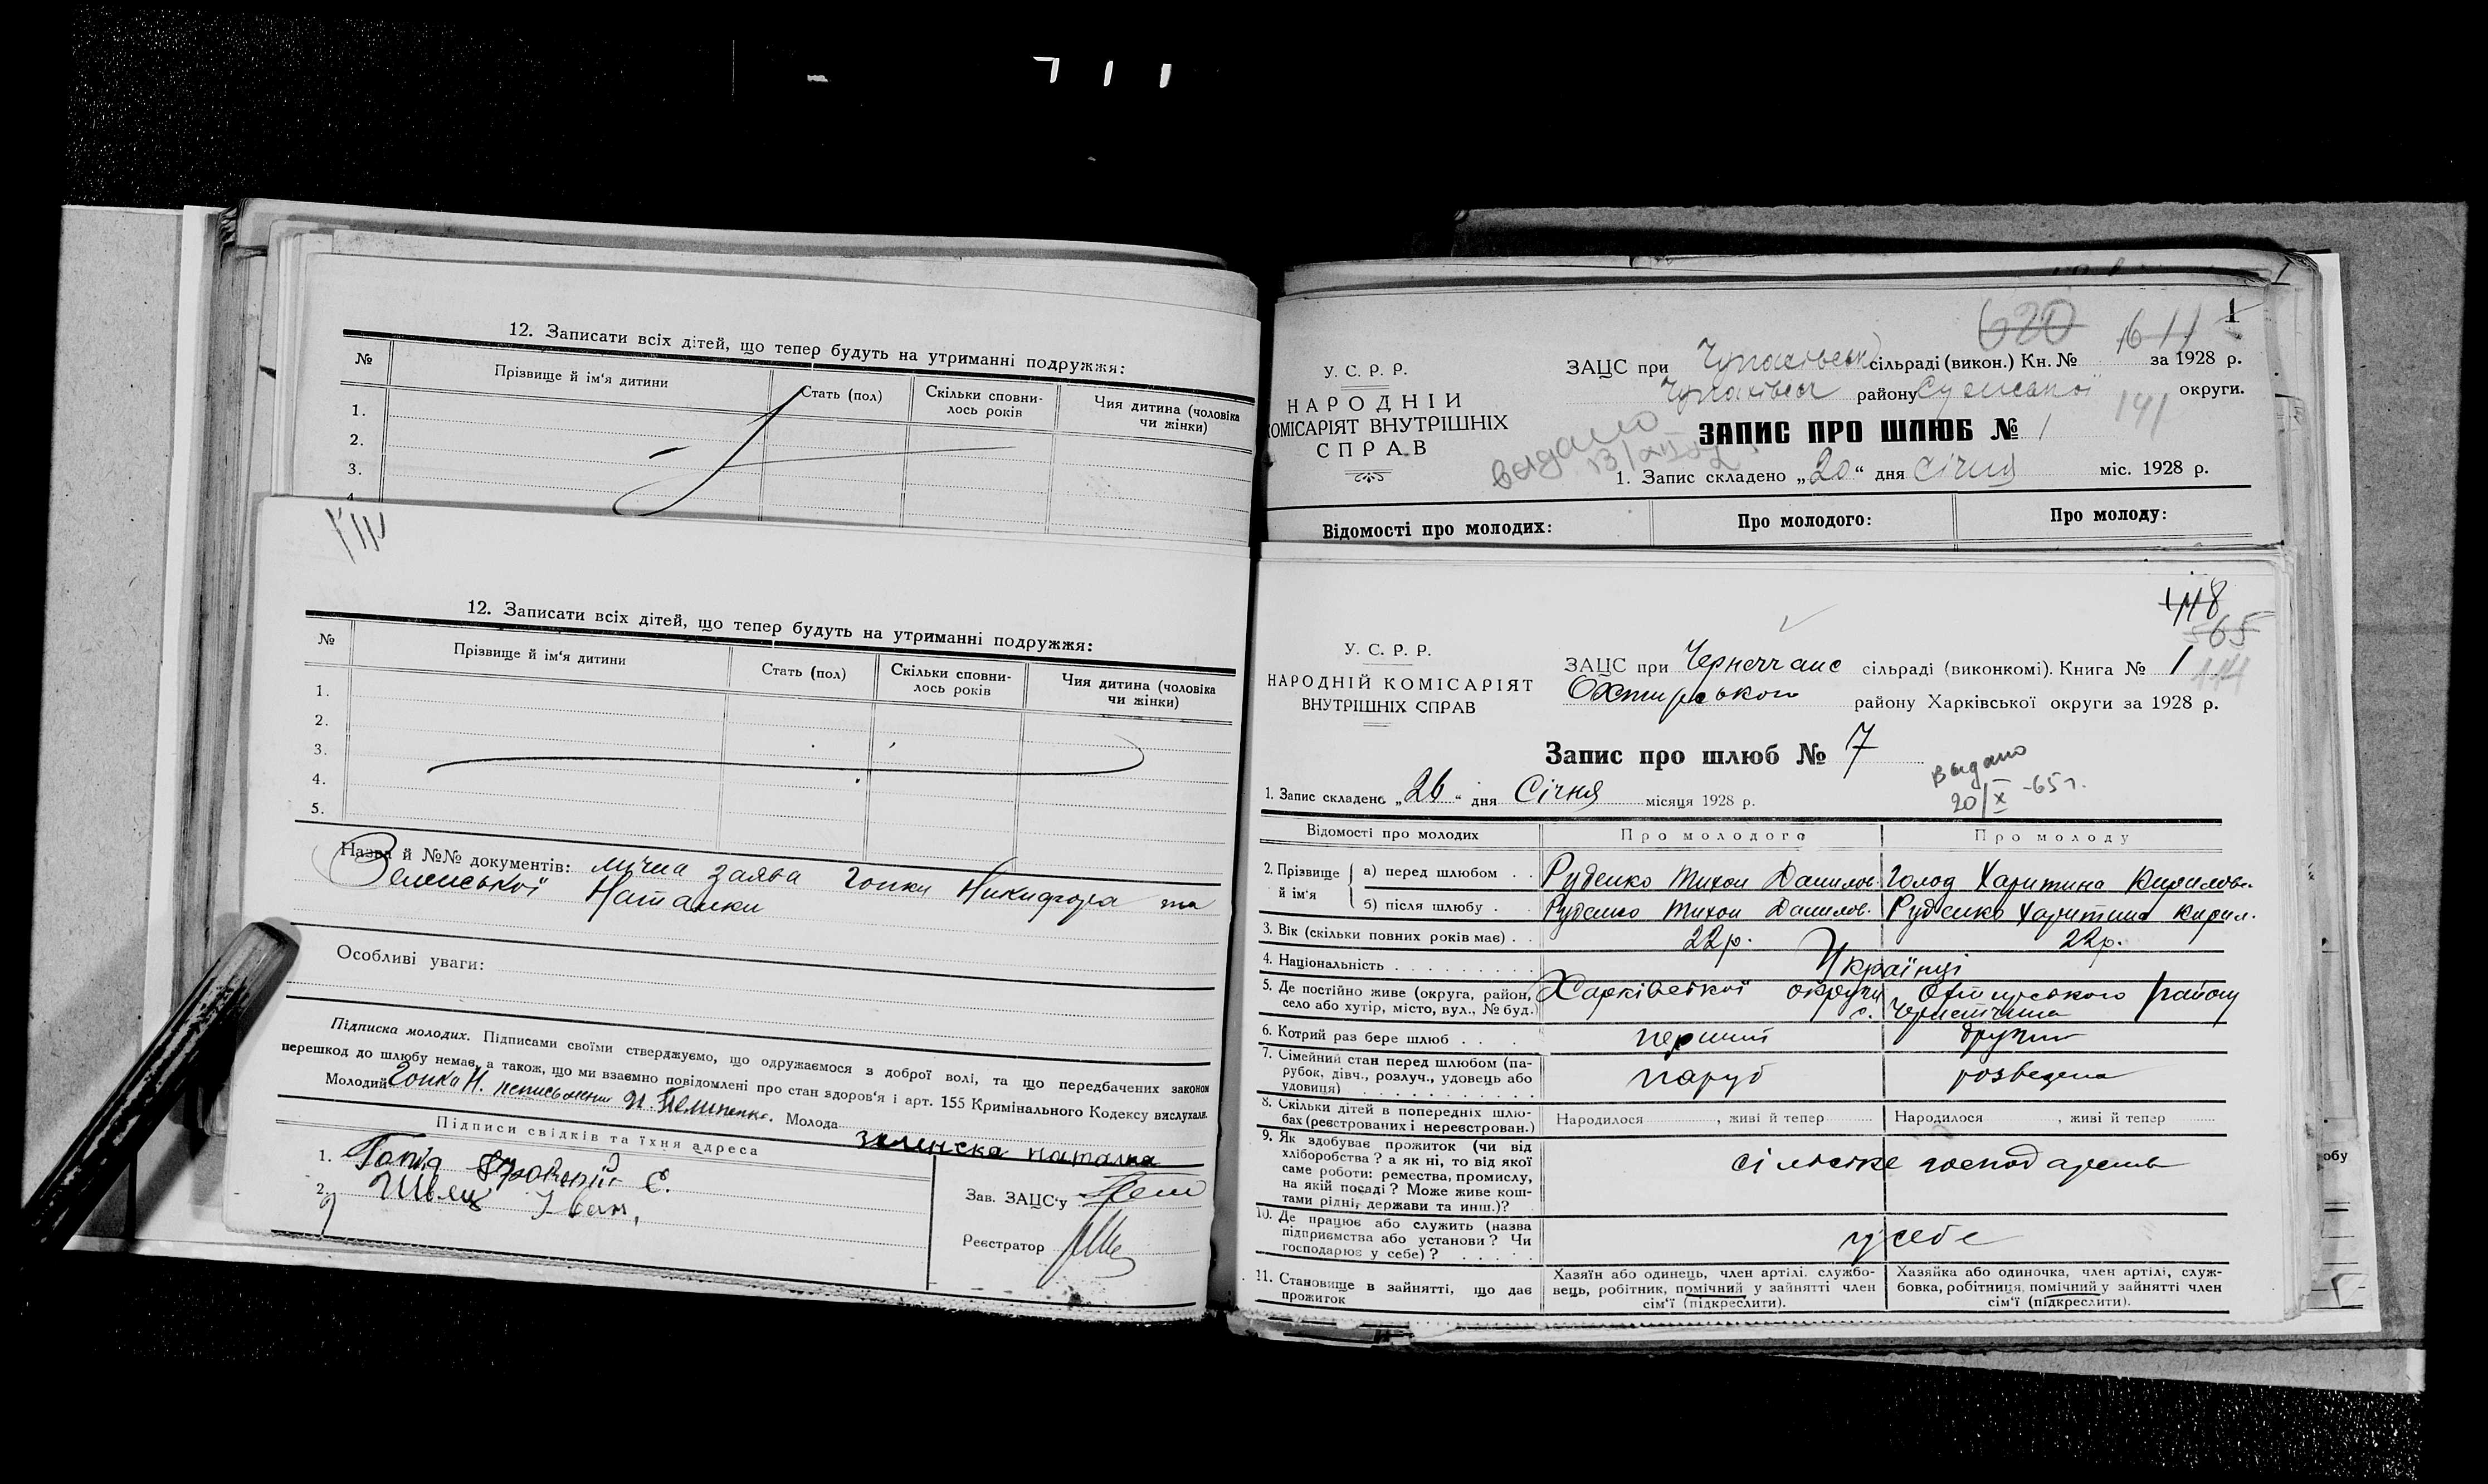 12. Записати всіх дітей, що тепер будуть на утриманні подружжя:
№ Прізвище й ім'я дитини Стать (пол) Скільки сповни- Чия дитина (чоловіка
лось років чи жінки)
1.
2.
3.
12. Записати всіх дітей, що тепер будуть на утриманні подружжя:
№ Прізвище й ім'я дитини Стать (пол) Скільки сповни- Чия дитина (чоловіка
лось років чи жінки)
1.
2.
3.
4.
5.
Назва й №№ документів: лична заява Гопки Никифора та
Зеленської Наталки
Особливі уваги:
Підписка молодих. Підписами своїми стверджуємо, що одружаємося з доброї волі, та що передбачених законом
перешкод до шлюбу немає, а також, що ми взаємно повідомлені про стан здоров'я і арт. 155 Кримінального Кодексу вислухали.
Молодий Гопка Н. неписьменн Молода зеленска наталка
Підписи свідків та їхня адреса
1.
2. Швец Іван,
Зав. ЗАЦС'у
Реєстратор
620 611 1
У. С. Р. Р.
НАРОДНІЙ
КОМІСАРІЯТ ВНУТРІШНІХ
СПРАВ
ЗАЦС при Чупахівськ сільраді (викон.) Кн. № за 1928 р.
Чупахівськ району Сумської округи.
141
видано
ЗАПИС ПРО ШЛЮБ № 1
1. Запис складено „20“ дня січня міс. 1928 р.
Відомості про молодих: Про молодого: Про молоду:
418
565
144
У. С. Р. Р.
НАРОДНІЙ КОМІСАРІЯТ
ВНУТРІШНІХ СПРАВ
ЗАЦС при Чернеччанс сільраді (виконкомі). Книга № 1
Охтирського району Харківської округи за 1928 р.
Запис про шлюб № 7
Выдано
20/X-65 г.
1. Запис складено „26“ дня Січня місяця 1928 р.
Відомості про молодих Про молодого Про молоду
2. Прізвище й ім'я а) перед шлюбом . . Руденко Тихон Данилов. Голод Харитина Кириловн.
б) після шлюбу . Руденко Тихон Данилов. Руденко Харитина Кирил.
3. Вік (скільки повних років має) . . 22 р. 22 р.
4. Національність . . . . . . . . . Українці
5. Де постійно живе (округа, район, Харківської округи Охтирського району
село або хутір, місто, вул., № буд.) с. Чернеччина
6. Котрий раз бере шлюб . . . перший другий
7. Сімейний стан перед шлюбом (па- паруб розведена
рубок, дівч., розлуч., удовець або
удовиця) . . . . . . . . . . .
8. Скільки дітей в попередніх шлю- Народилося , живі й тепер Народилося , живі й тепер
бах (реєстрованих і нереєстрован.)
9. Як здобуває прожиток (чи від сільське господарство
хліборобства? а як ні, то від якої
саме роботи: ремества, промислу,
на якій посаді? Може живе кош-
тами рідні, держави та инш.)?
10. Де працює або служить (назва у себе
підприємства або установи? Чи
господарює у себе)? . . . . .
11. Становище в зайнятті, що дає Хазяїн або одинець, член артілі. службо- Хазяйка або одиночка, член артілі, служ-
прожиток вець, робітник, помічний у зайнятті член бовка, робітниця, помічний у зайнятті член
сім'ї (підкреслити). сім'ї (підкреслити).
обу